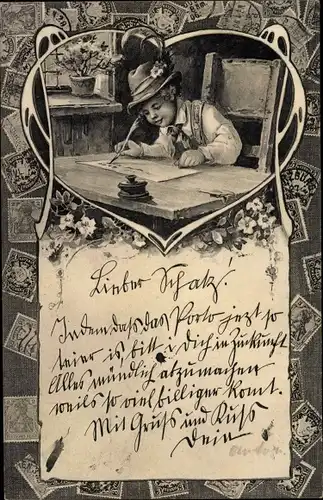 Lieber Schatz!
Indem daß das Porto jezt so
teier is, bitt i dich in Zuckunft
Alles mündlich abzumachen
weils so viel billiger komt.
Mit Gruss und Kuss
Dein